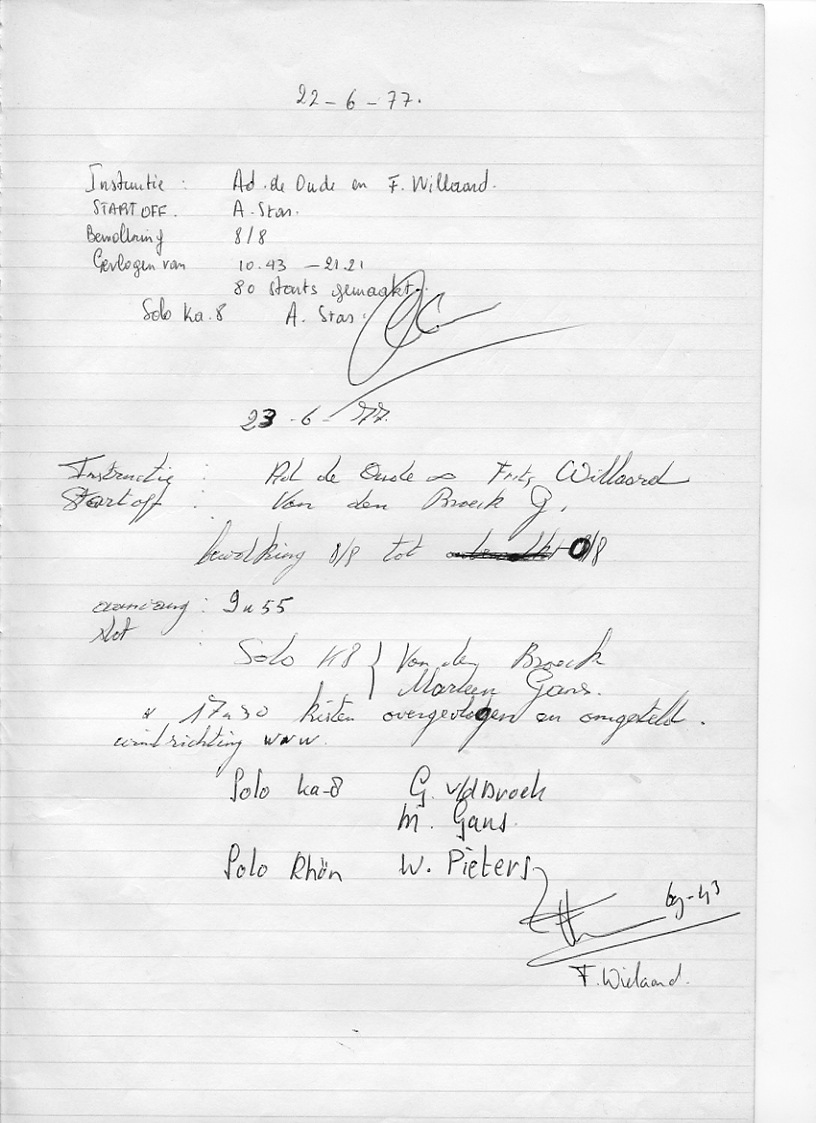 22-6-77.
Instructie : Ad. de Oude en F. Willaard.
START OFF. A. Stas.
Bewolking 8/8
Gevlogen van 10.43 - 21.21
80 starts gemaakt.
Solo Ka.8 A. Stas.
23-6-77.
Instructie : Ad de Oude Frits Willaard
Start off : Van den Broeck G.
bewolking 8/8 tot 0/8
aanvang : 9u55
slot :
Solo K8 } Van den Broeck
Marleen Gans.
17u30 kisten overgevlogen en omgeteld.
windrichting WNW.
Solo Ka-8 G. v/d Broek
M. Gans.
Solo Rhön W. Pieters
F. Wielaard.